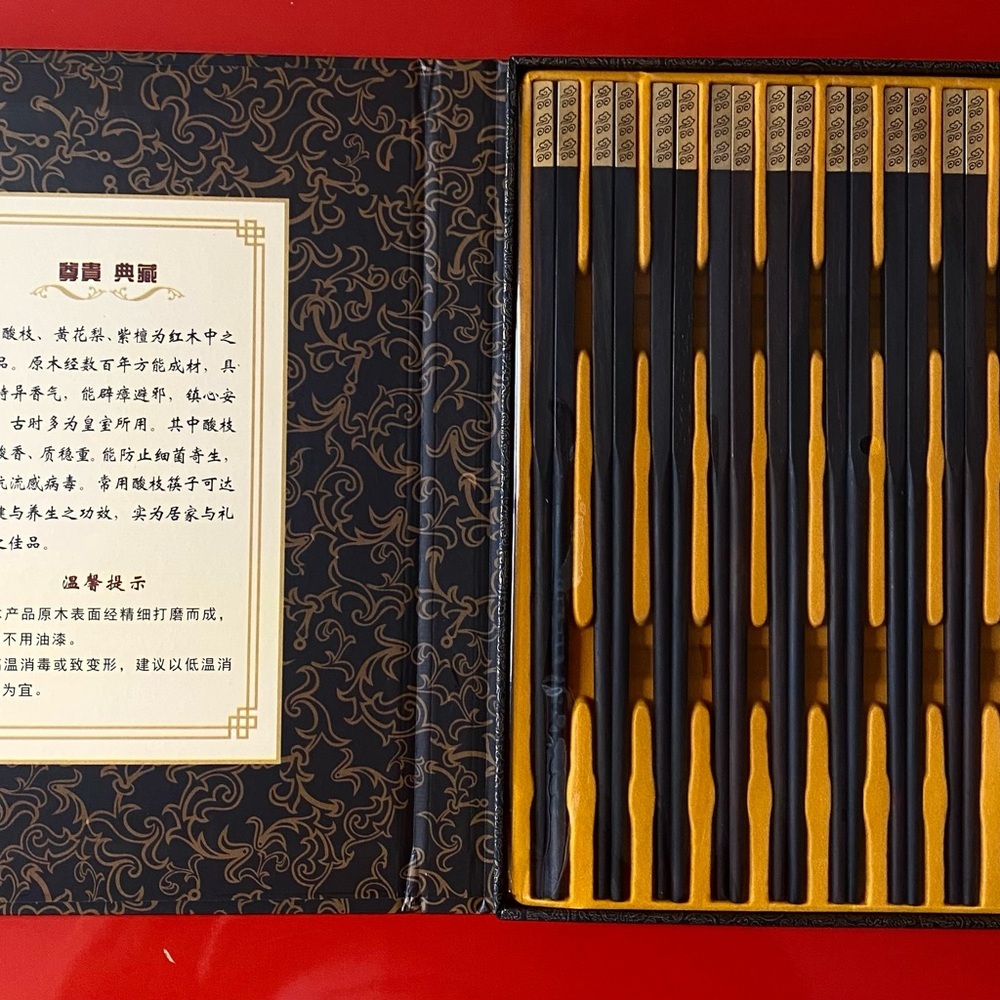 尊貴 典藏
酸枝、黄花梨、紫檀为红木中之
品。原木经数百年方能成材，具
特异香气，能辟瘴避邪，镇心安
古时多为皇室所用。其中酸枝
酸香、质稳重。能防止细菌寄生，
抗流感病毒。常用酸枝筷子可达
健与养生之功效，实为居家与礼
之佳品。
温馨提示
产品原木表面经精细打磨而成，
不用油漆。
高温消毒或致变形，建议以低温消
为宜。